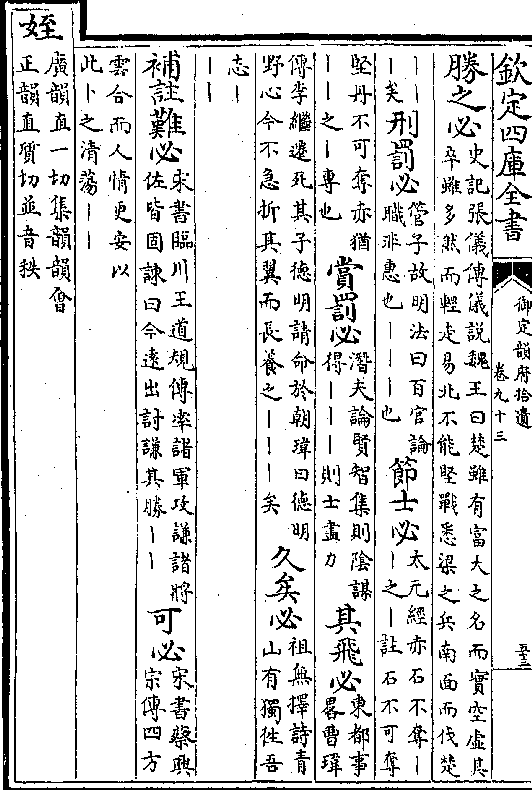 欽定四庫全書
御定韻府拾遺
卷九十三
五三
勝之必
史記張儀傳儀説魏王曰楚雖有富大之名而實空虚其
卒雖多然而輕走易北不能堅戰悉梁之兵南面而伐楚
｜｜
｜矣
刑罰必
管子故明法曰百官論
職非惠也｜｜｜也
節士必
太元經亦石不奪｜
｜之｜註石不可奪
堅丹不可奪亦猶
｜｜之｜專也
賞罰必
潛夫論賢智集則陰謀
得｜｜｜則士盡力
其飛必
東都事
畧曹瑋
傳李繼遷死其子德明請命於朝瑋曰德明
野心今不急折其翼而長養之｜｜｜矣
久矣必
祖無擇詩青
山有獨徃吾
志｜
｜｜
補註難必
宋書臨川王道規傳率諸軍攻謙諸將
佐皆固諫曰今遠出討謙其勝｜｜
可必
宋書蔡興
宗傳四方
雲合而人情更安以
此卜之清蕩｜｜
姪
廣韻直一切集韻韻會
正韻直質切並音秩